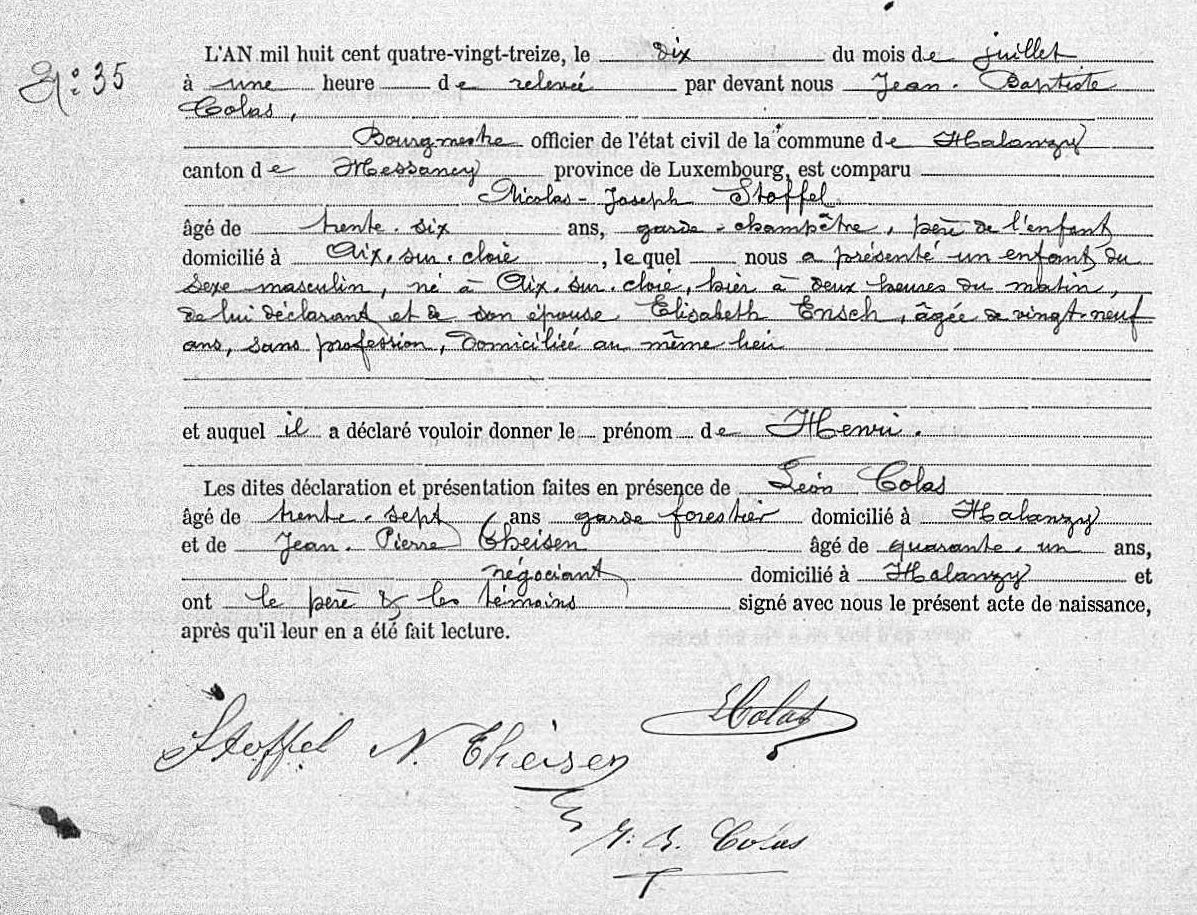 L'AN mil huit cent quatre-vingt-treize, le dix du mois de juillet
N: 35
à une heure de relevée par devant nous Jean-Baptiste
Colas,
Bourgmestre officier de l'état civil de la commune de Halanzy
canton de Messancy province de Luxembourg, est comparu
Nicolas-Joseph Stoffel
âgé de trente-six ans, garde-champêtre, père de l'enfant
domicilié à Aix-sur-cloie, le quel nous a présenté un enfant du
sexe masculin, né à Aix-sur-cloie, hier à deux heures du matin,
de lui déclarant et de son épouse Elisabeth Ensch, âgée de vingt-neuf
ans, sans profession, domiciliée au même lieu
et auquel il a déclaré vouloir donner le prénom de Henri.
Les dites déclaration et présentation faites en présence de Léon Colas
âgé de trente-sept ans garde forestier domicilié à Halanzy
et de Jean-Pierre Theisen âgé de quarante-un ans,
négociant domicilié à Halanzy et
ont le père & les témoins signé avec nous le présent acte de naissance,
après qu'il leur en a été fait lecture.
Colas
Stoffel N. Theisen
J. B. Colas